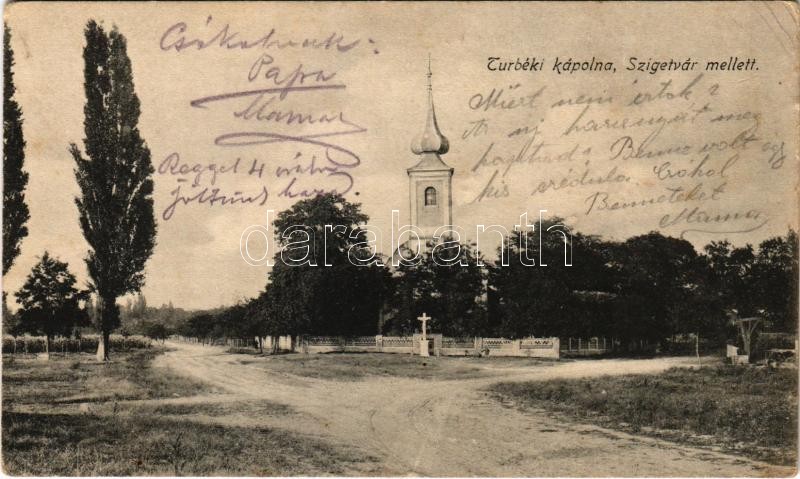 Turbéki kápolna, Szigetvár mellett.
Csókolunk:
Papa
Mama
Reggel 4 órára
jöttünk haza.
Miért nem írtok?
Az új harisnyát meg
kaptad? Benne volt egy
kis cédula. Csókol
Benneteket
Mama
darabanth